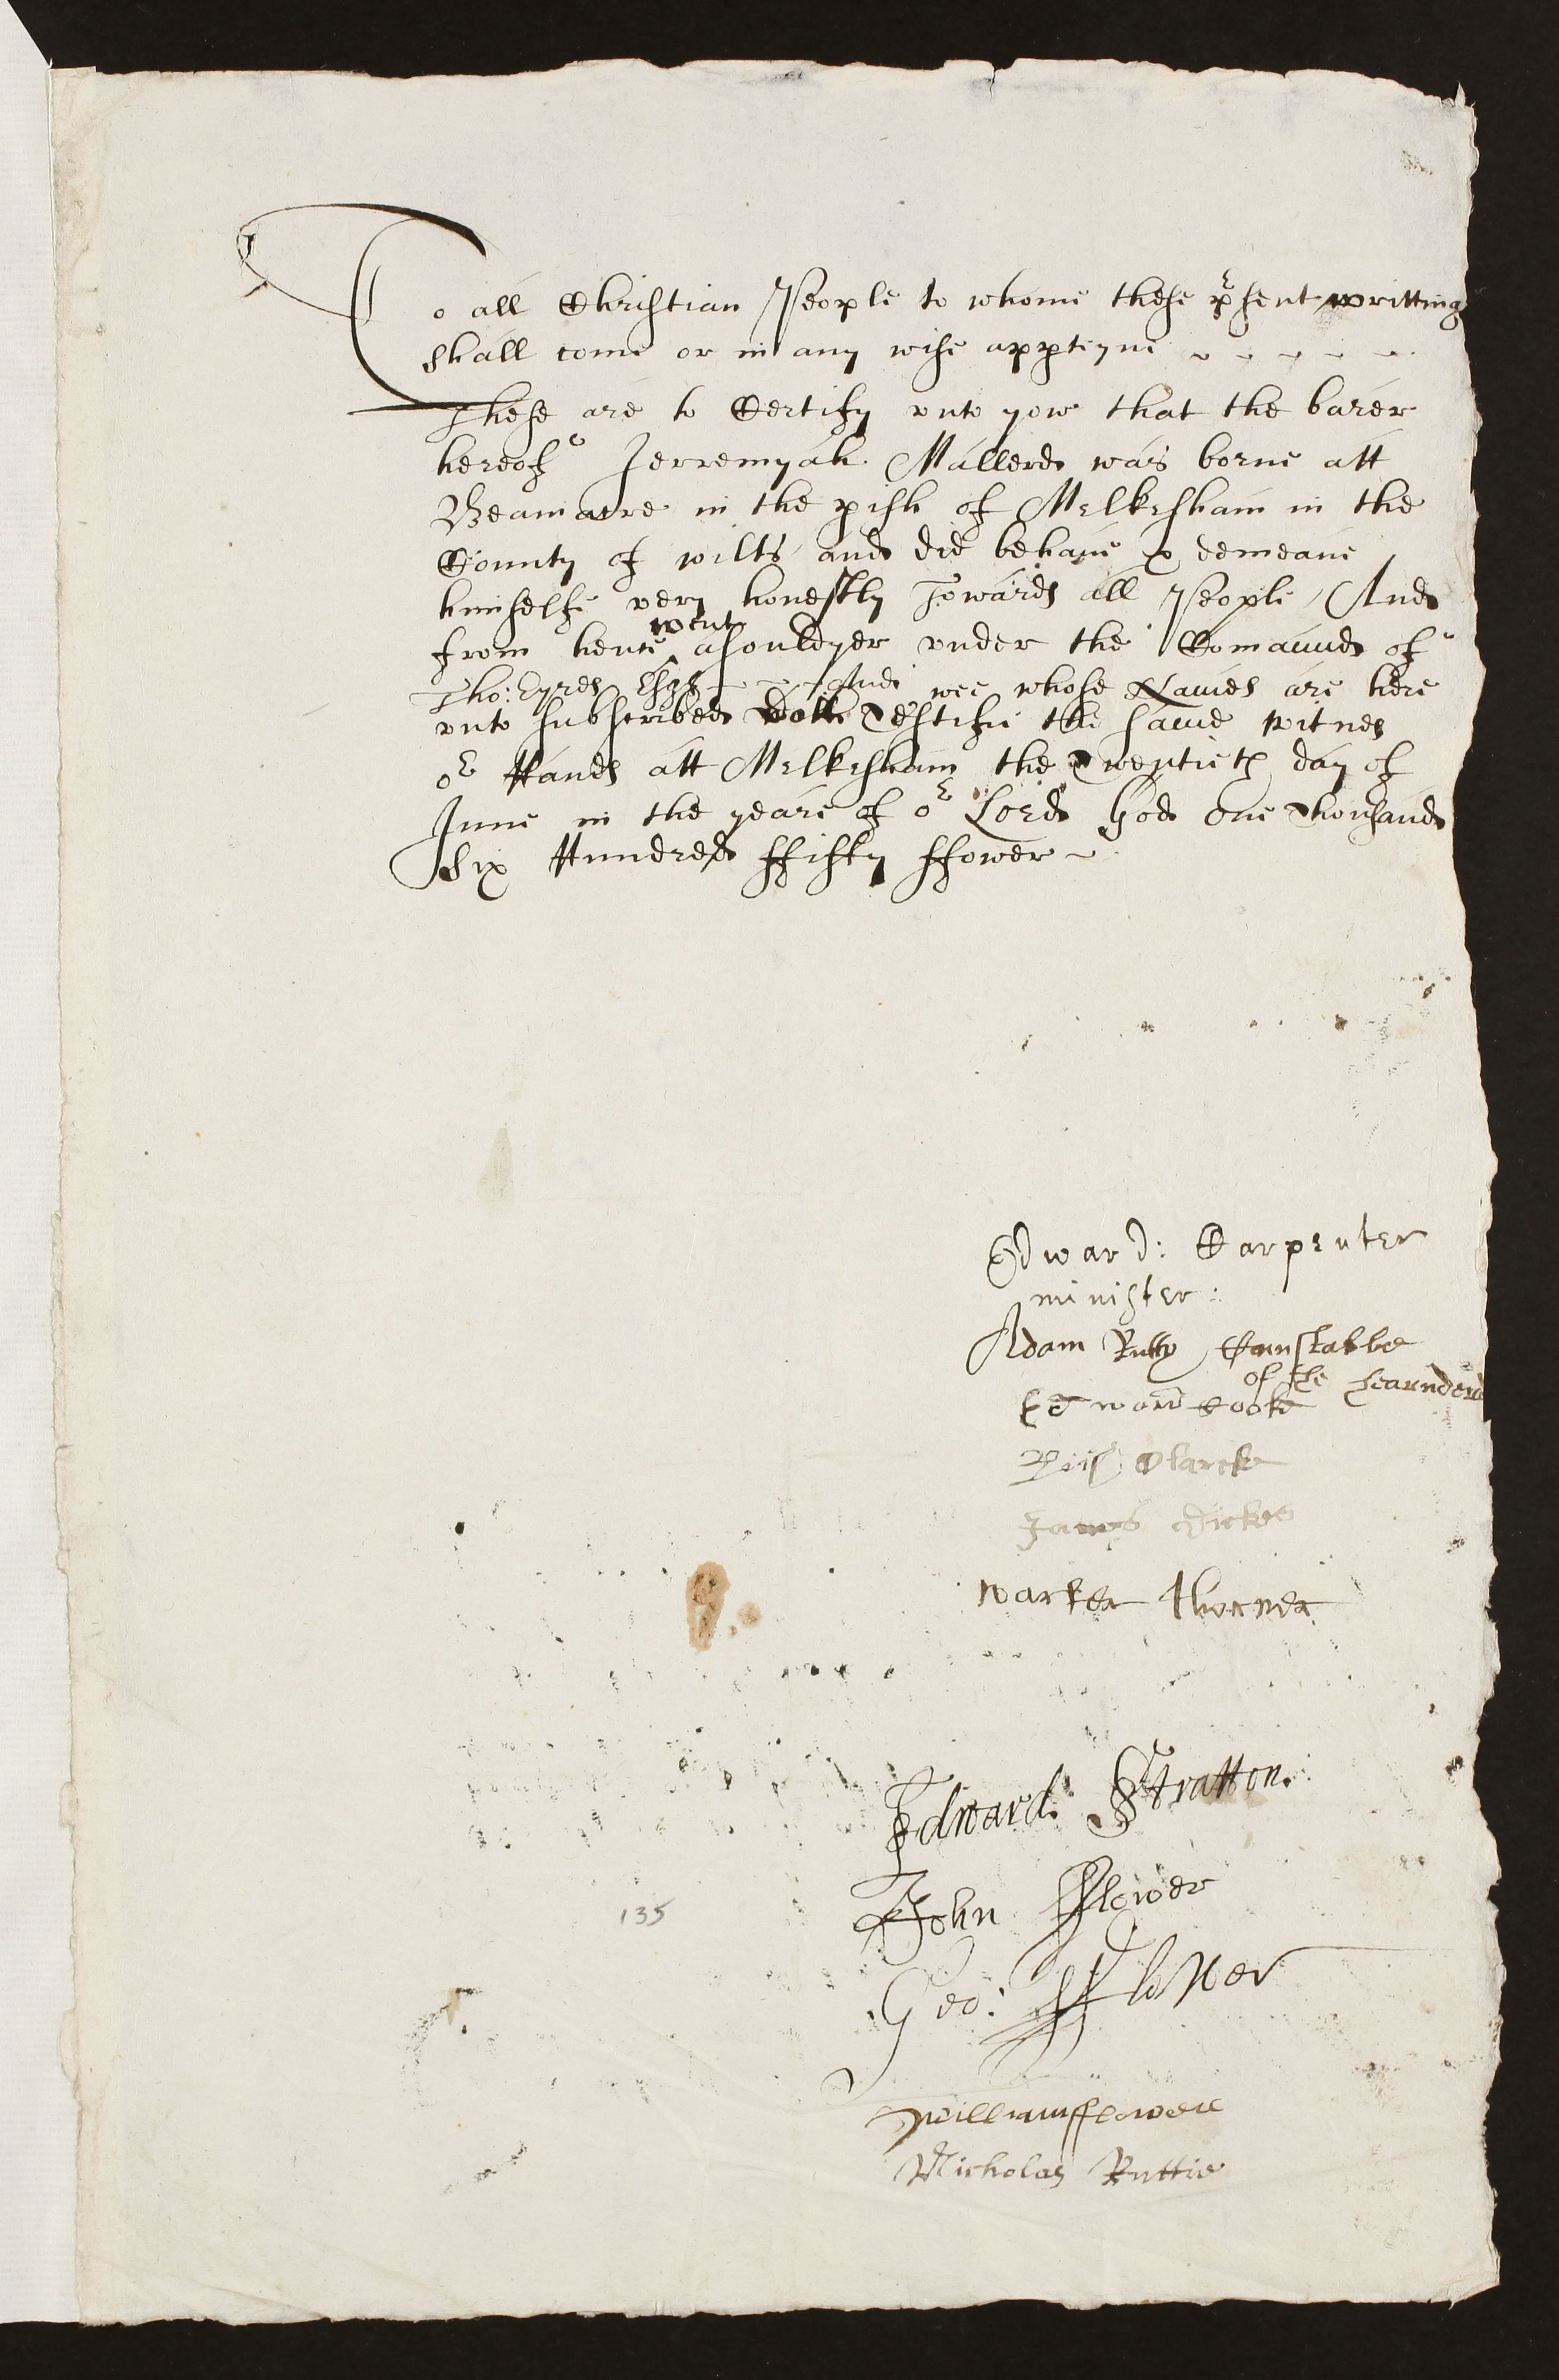 To all Christian People to whome these pʳsent writting
shall come or in any wise appteyne
These are to Certify vnto yow that the barer
hereof Jerremyah Mallerd was borne att
Beamarre in the pish of Melkesham in the
County of wilts and did behave & demeane
himselfe very honestly Towards all People And
from hence went a souldyer vnder the Comaund of
Tho: Eyres Esqr And wee whose Names are here
vnto subscribed doth Testifie the same witnes
oʳ Hands att Melkesham the Twentieth day of
June in the yeare of oʳ Lord God One Thousand
Six Hundred ffifty ffower
Edward: Carpenter
minister:
Adam Rutty Cunstabbe
of the
Edward Cooke
Clarcke
James Dicke
Warker Thurner
Edward Stratton
John fflower
Geo: fflower
William fflower
Nicholas Ruttie
135